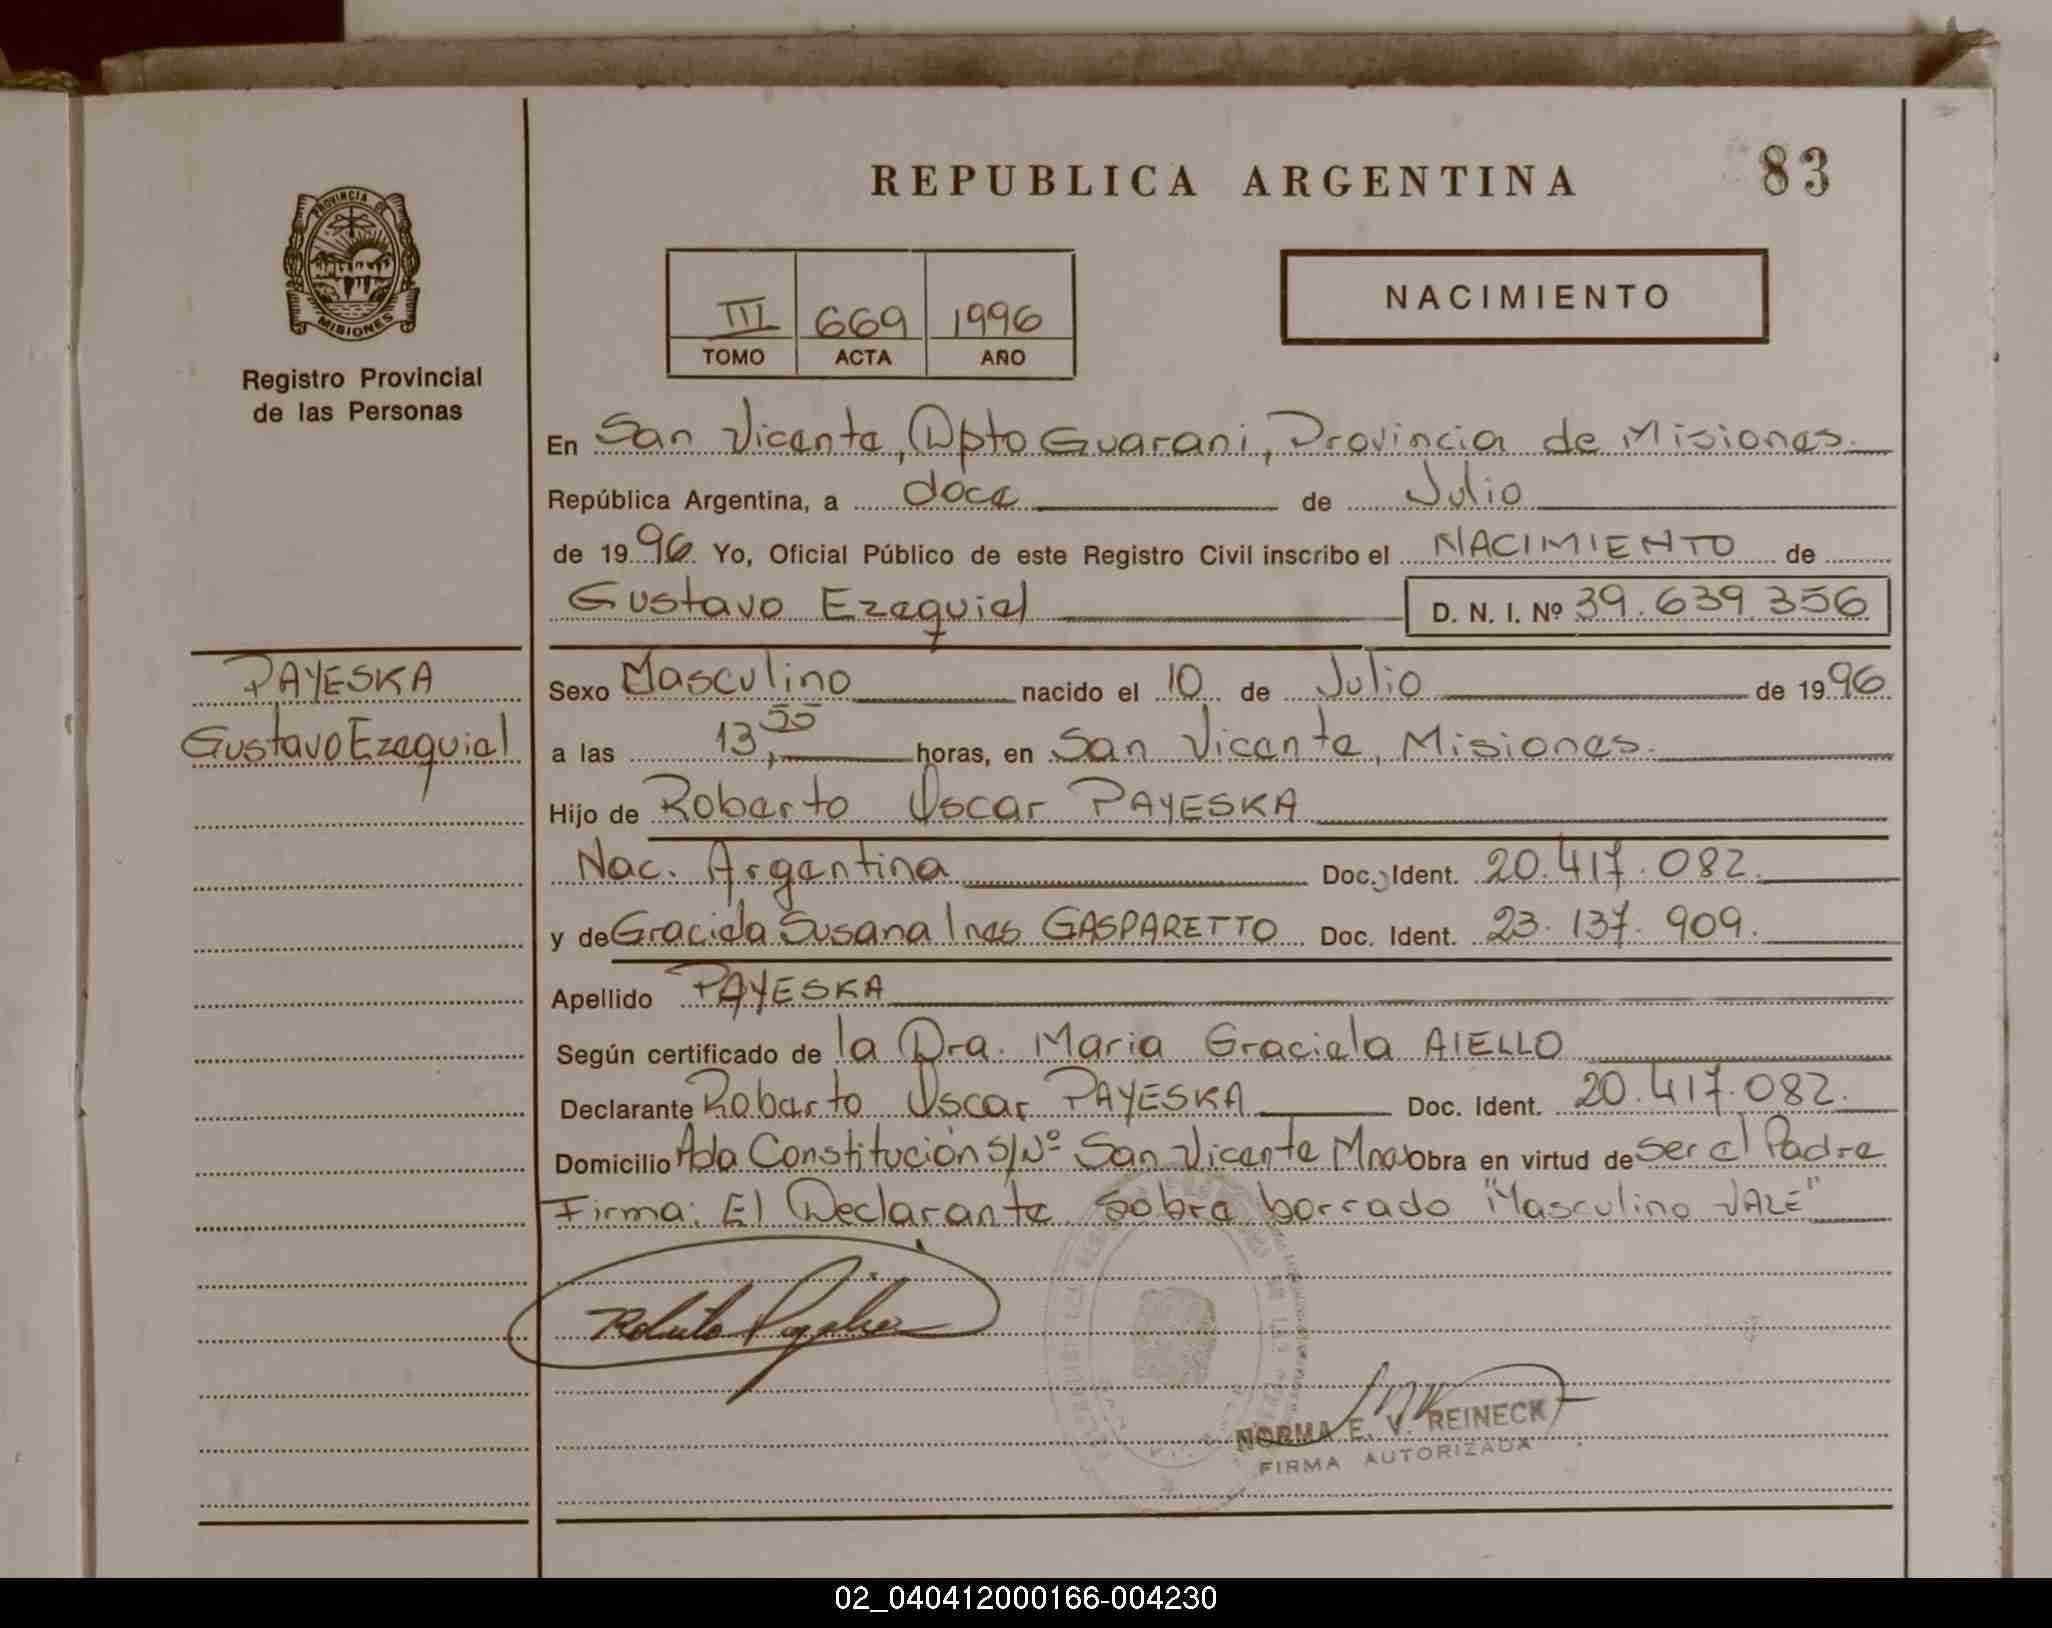 REPUBLICA ARGENTINA 83
PROVINCIA DE
MISIONES
Registro Provincial
de las Personas
NACIMIENTO
III 669 1996
TOMO ACTA AÑO
En San Vicente, Dpto Guarani, Provincia de Misiones.
República Argentina, a doce de Julio
de 1996 Yo, Oficial Público de este Registro Civil inscribo el NACIMIENTO de
Gustavo Ezequiel D. N. I. Nº 39.639.356
PAYESKA
Gustavo Ezequiel
Sexo Masculino nacido el 10 de Julio de 1996
a las 13,55 horas, en San Vicente, Misiones.
Hijo de Roberto Oscar PAYESKA
Nac. Argentina Doc. Ident. 20.417.082.
y de Graciela Susana Ines GASPARETTO Doc. Ident. 23.137.909.
Apellido PAYESKA
Según certificado de la Dra. Maria Graciela AIELLO
Declarante Roberto Oscar PAYESKA Doc. Ident. 20.417.082.
Domicilio Avda Constitución S/Nº San Vicente Mnes Obra en virtud de ser el Padre
Firma: El Declarante Sobre borrado "Masculino VALE"
NORMA E. V. REINECK
FIRMA AUTORIZADA
02_040412000166-004230